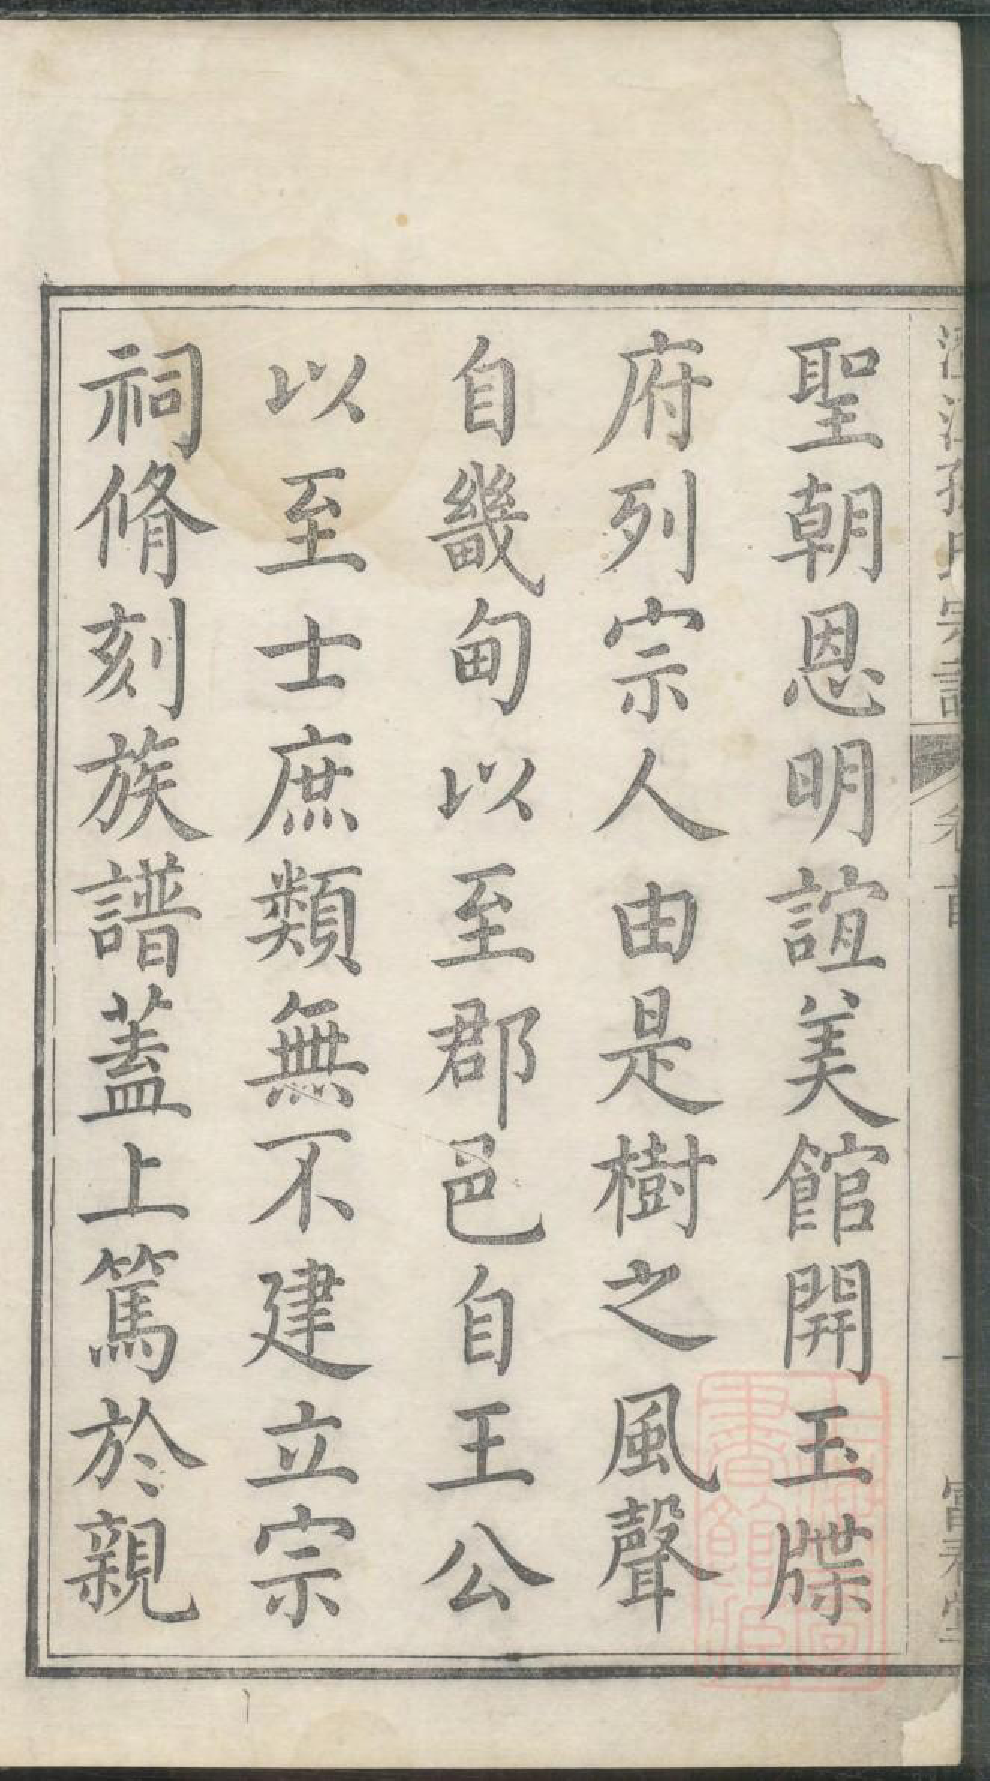 聖朝恩明誼美館開玉牒
府列宗人由是樹之風聲
自畿甸以至郡邑自王公
以至士庶類無不建立宗
祠脩刻族譜蓋上篤於親